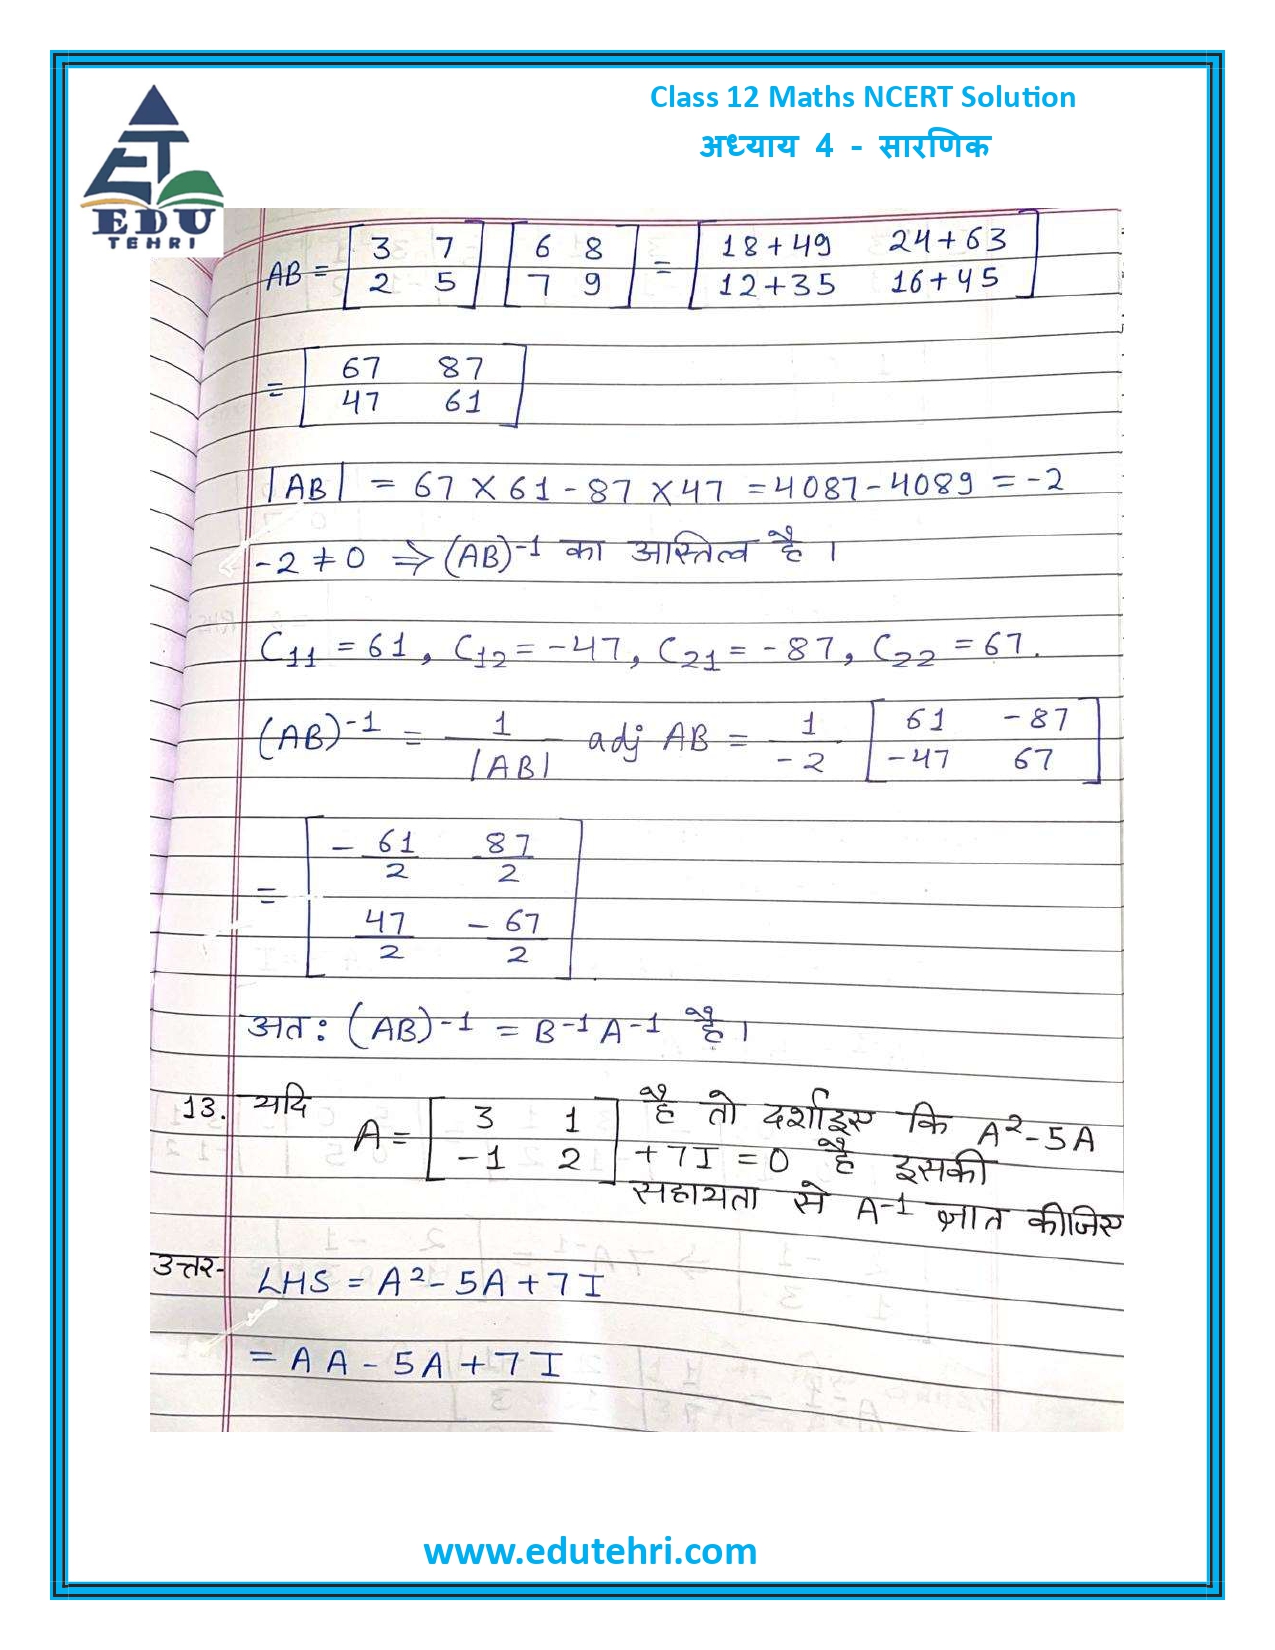 Class 12 Maths NCERT Solution
अध्याय 4 - सारणिक
EDU
TEHRI
AB = [3 7 2 5] [6 8 7 9] = [18+49 24+63 12+35 16+45]
= [67 87 47 61]
|AB| = 67 × 61 - 87 × 47 = 4087 - 4089 = -2
-2 ≠ 0 ⇒ (AB)⁻¹ का आस्तित्व है ।
C₁₁ = 61, C₁₂ = -47, C₂₁ = -87, C₂₂ = 67.
(AB)⁻¹ = 1/|AB| adj AB = 1/-2 [61 -87 -47 67]
= [-61/2 87/2 47/2 -67/2]
अतः (AB)⁻¹ = B⁻¹ A⁻¹ है ।
13. यदि A = [3 1 -1 2] है तो दर्शाइए कि A² - 5A
+ 7I = 0 है इसकी
सहायता से A⁻¹ ज्ञात कीजिए
उत्तर- LHS = A² - 5A + 7I
= AA - 5A + 7I
www.edutehri.com